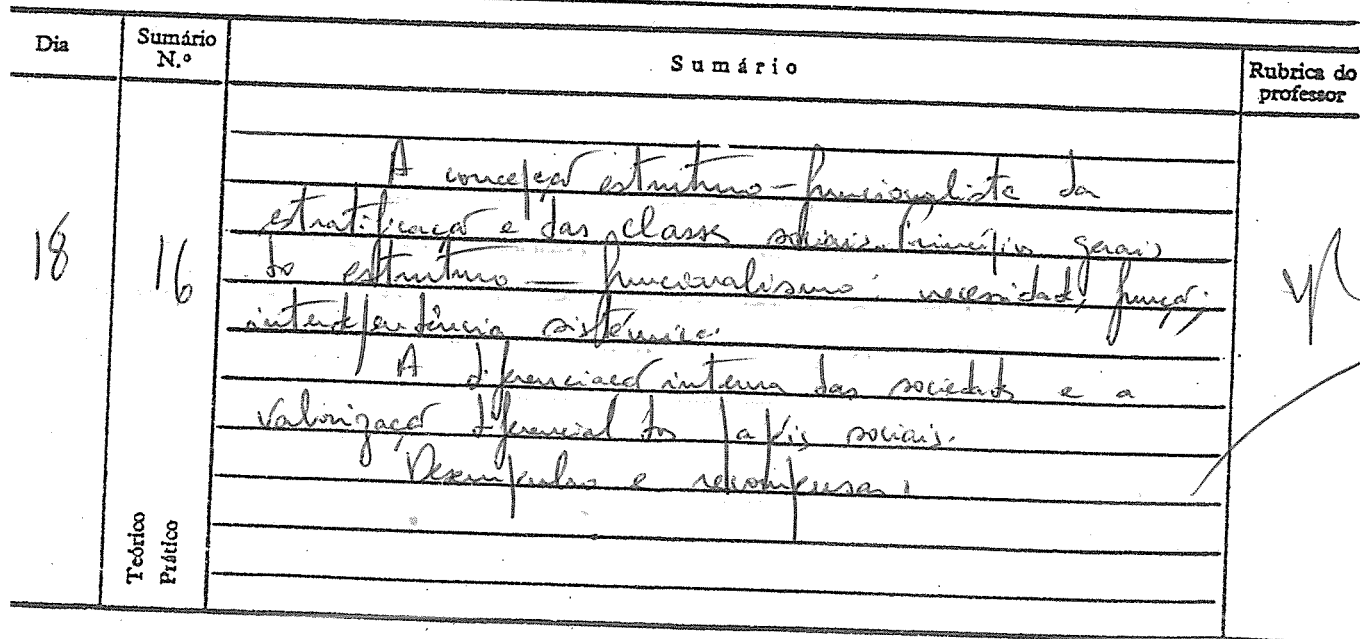 Dia
Sumário N.º
Sumário
Rubrica do professor
18
16
A concepção estruturo-funcionalista da
estratificação e das classes sociais. Princípios gerais
do estruturo-funcionalismo: necessidade, função,
interdependência sistémica.
A diferenciação interna das sociedades e a
valorização diferencial dos papéis sociais.
Desempenhos e recompensas.
Teórico
Prático